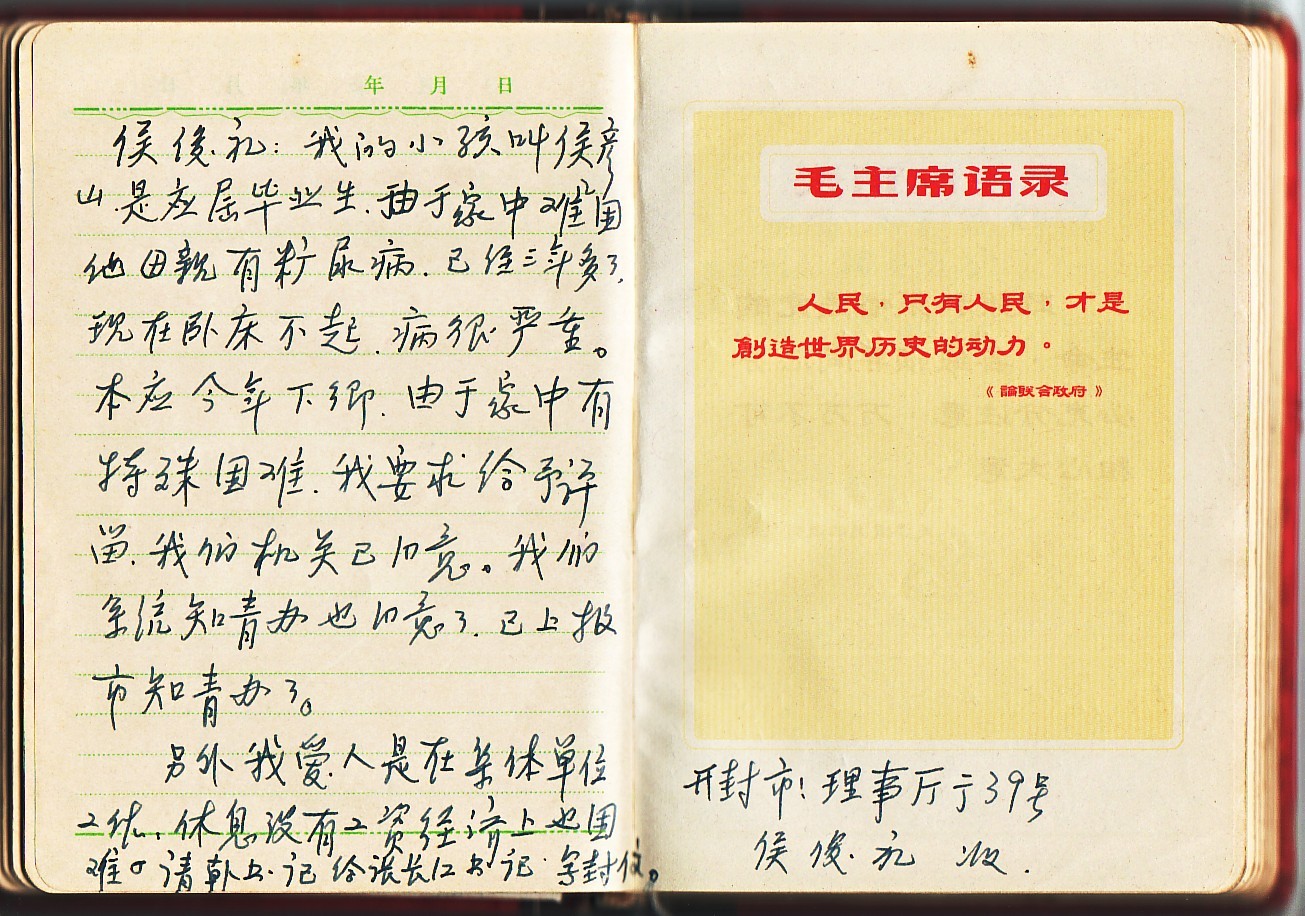 年 月 日
侯俊礼：我的小孩叫侯彦
山.是应届毕业生.由于家中难困
他母亲有籿尿病.已经三年多了.
现在卧床不起.病很严重。
本应今年下乡.由于家中有
特殊困难.我要求给予许
留.我们机关已同意。我们
系统知青办也同意了.已上报
市知青办了。
另外我爱人是在集体单位
工作.休息没有工资经济上也困
难。请郭书记给张长江书记写封信。
毛主席语录
人民，只有人民，才是
創造世界历史的动力。
《論联合政府》
开封市！理事厅亍39号
侯俊礼 收.